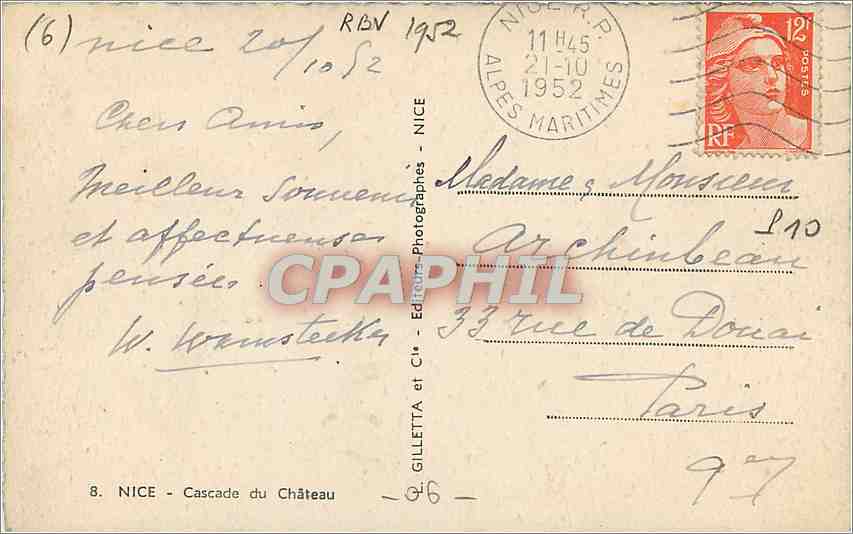 (6)
RBV 1952
Nice 20/
10 52
Chers Amis,
Meilleur Souvenir
et affectueuses
pensées
W. Wamstecker
8. NICE - Cascade du Château
GILLETTA et Cie - Editeurs-Photographes - NICE
NICE R.P.
11 H 45
21-10
1952
ALPES MARITIMES
12F
POSTES
RF
Madame & Monsieur
Archinbeau
33 rue de Douai
Paris
9em
S10
-06-
CPAPHIL